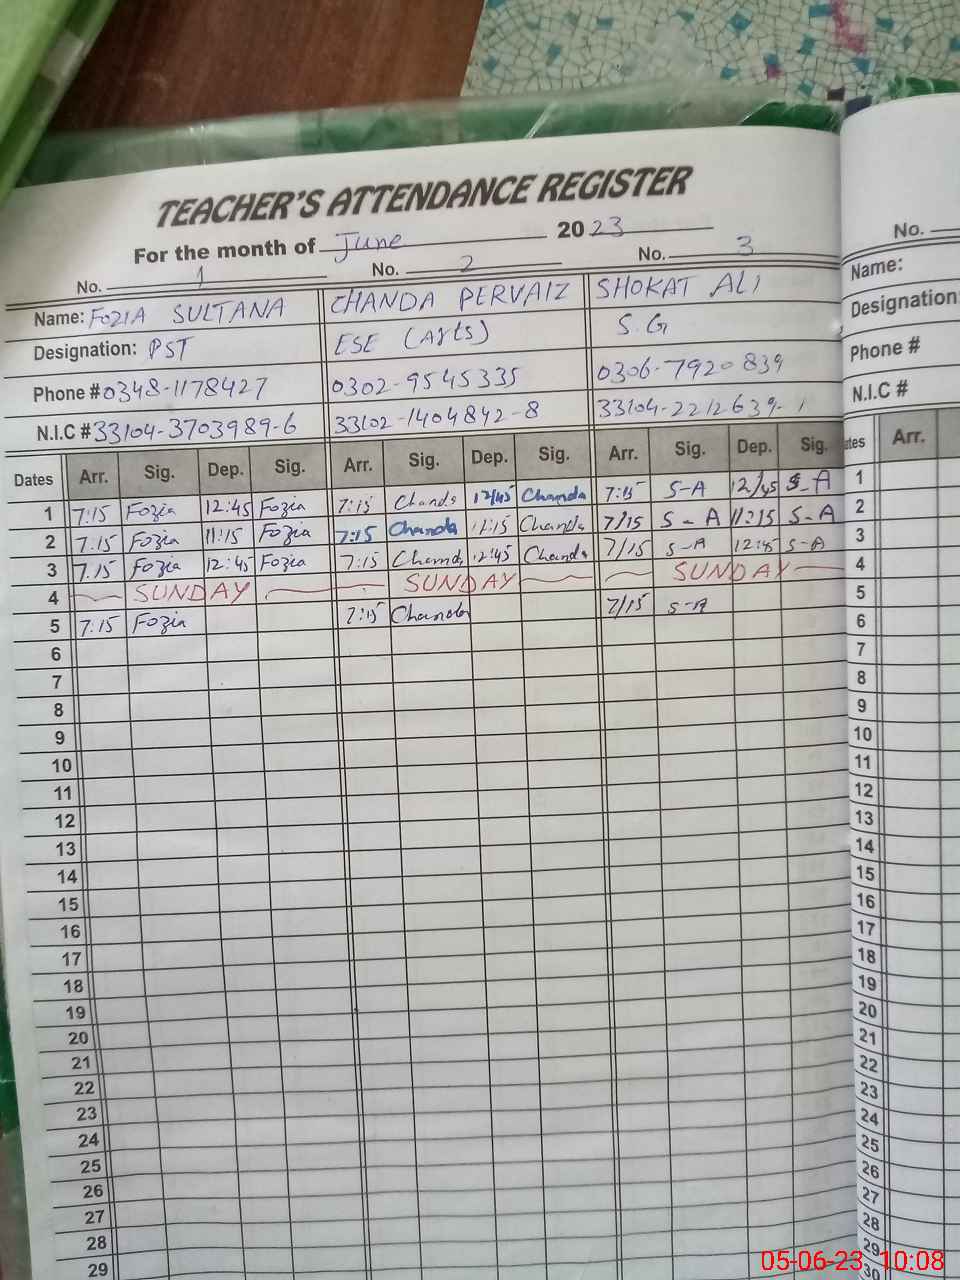 TEACHER'S ATTENDANCE REGISTER
For the month of June 2023
No. 1 No. 2 No. 3 No.
Name: FOZIA SULTANA CHANDA PERVAIZ SHOKAT ALI Name:
Designation: PST ESE (Arts) S.G Designation:
Phone # 0348-1178427 0302-9545335 0306-7920839 Phone #
N.I.C # 33104-3703989-6 33102-1404842-8 33104-2212639-1 N.I.C #
Dates Arr. Sig. Dep. Sig. Arr. Sig. Dep. Sig. Arr. Sig. Dep. Sig. ates Arr.
1 7:15 Fozia 12:45 Fozia 7:15 Chanda 12/45 Chanda 7:15 S-A 12/45 S-A 1
2 7:15 Fozia 11:15 Fozia 7:15 Chanda 11:15 Chanda 7/15 S-A 11:15 S-A 2
3 7:15 Fozia 12:45 Fozia 7:15 Chanda 12:45 Chanda 7/15 S-A 12:45 S-A 3
4 SUNDAY SUNDAY SUNDAY 4
5 7:15 Fozia 7:15 Chanda 7/15 S-A 5
6 6
7 7
8 8
9 9
10 10
11 11
12 12
13 13
14 14
15 15
16 16
17 17
18 18
19 19
20 20
21 21
22 22
23 23
24 24
25 25
26 26
27 27
28 28
29 29
30
05-06-23 10:08